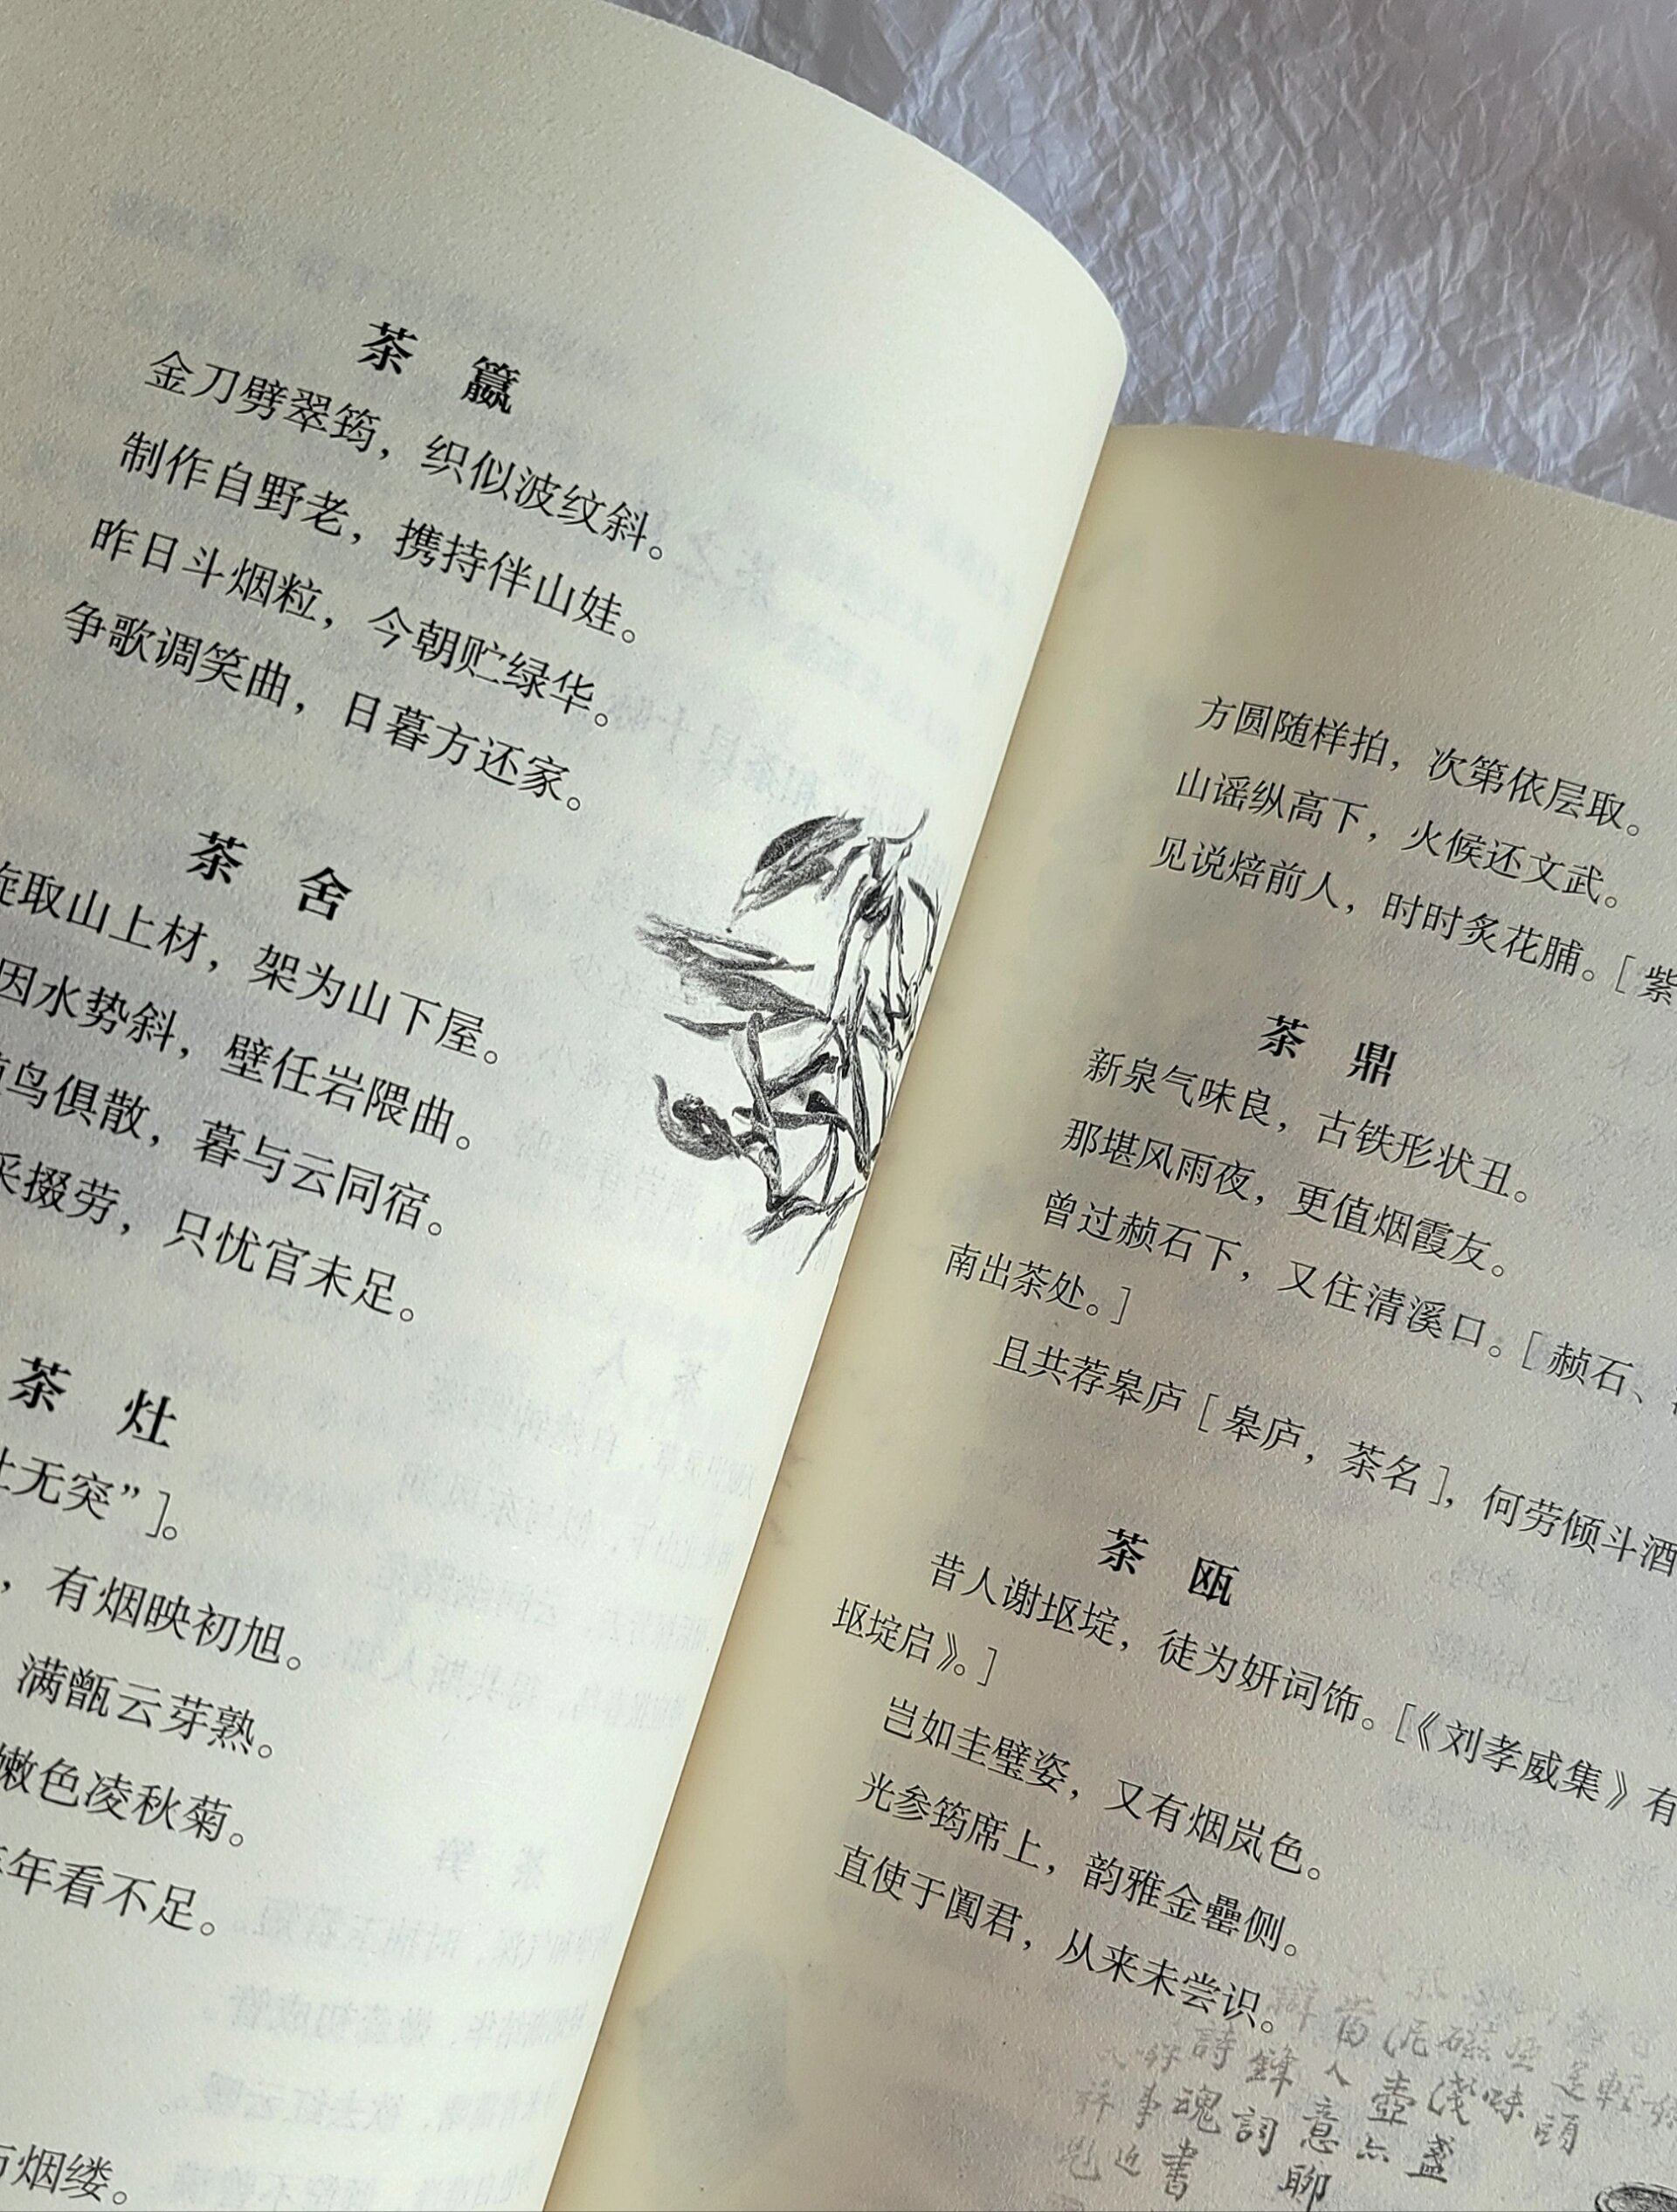 茶 籝
金刀劈翠筠，织似波纹斜。
制作自野老，携持伴山娃。
昨日斗烟粒，今朝贮绿华。
争歌调笑曲，日暮方还家。
茶 舍
旋取山上材，架为山下屋。
因水势斜，壁任岩隈曲。
鸟俱散，暮与云同宿。
采掇劳，只忧官未足。
茶 灶
灶无突”]。
，有烟映初旭。
满甑云芽熟。
嫩色凌秋菊。
年看不足。
烟缕。
方圆随样拍，次第依层取。
山谣纵高下，火候还文武。
见说焙前人，时时炙花脯。[紫
茶 鼎
新泉气味良，古铁形状丑。
那堪风雨夜，更值烟霞友。
曾过赪石下，又住清溪口。[赪石、
南出茶处。]
且共荐皋庐[皋庐，茶名]，何劳倾斗酒
茶 瓯
昔人谢塸埞，徒为妍词饰。[《刘孝威集》有
塸埞启》。]
岂如圭璧姿，又有烟岚色。
光参筠席上，韵雅金罍侧。
直使于阗君，从来未尝识。
詩 人 壺 淺 味 頭
事 魂 詞 意 盞
書 聊